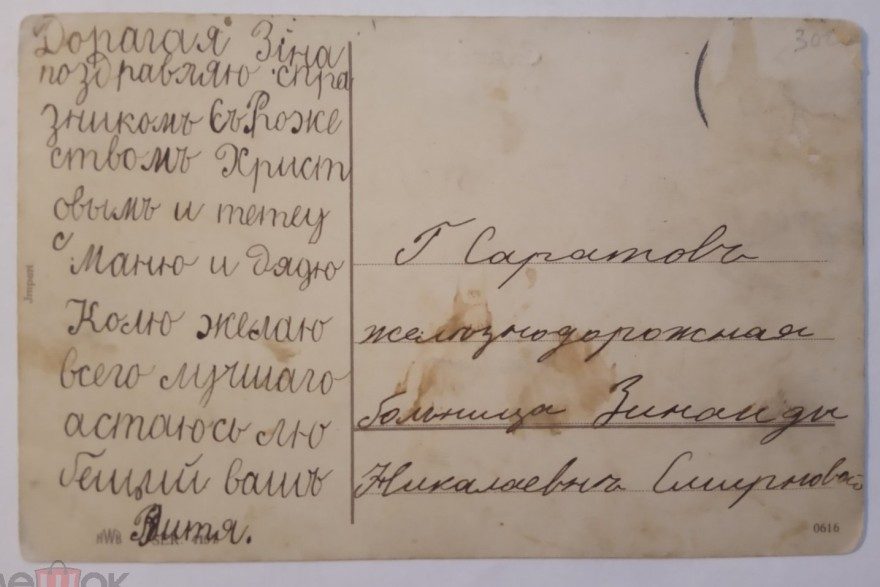 Дорагая Зіна
поздравляю спра
зникомъ Съ Роже
ствомъ Христ
овымъ и тетеу
Маню и дядю
Колю желаю
всего лучшаго
астаюсь лю
бещий вашъ
Витя.
Г Саратовъ
желѣзнодорожная
больница Зинаиды
Николаевнъ Смирновой
Jmporté
0616